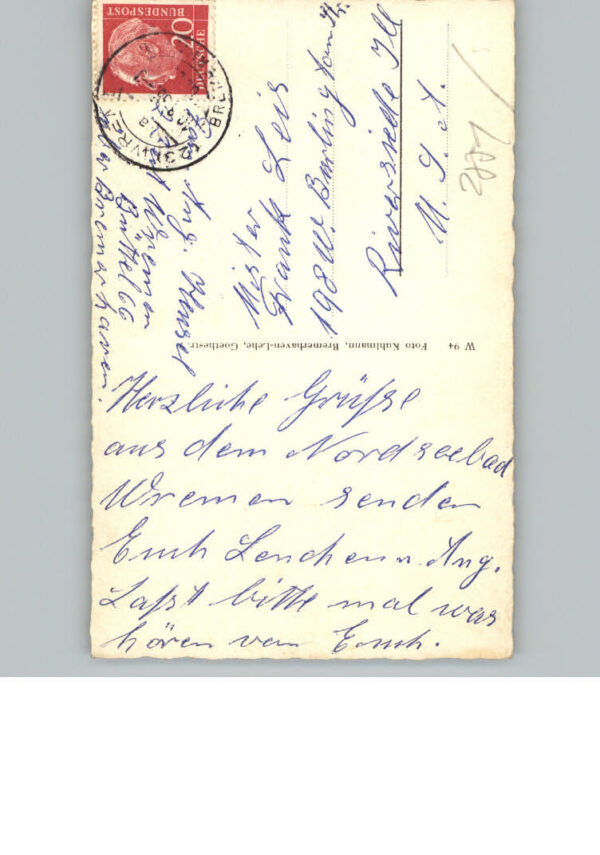 Herzliche Grüße
aus dem Nordseebad
Wremen senden
Euch Lenchen u. Aug.
Laßt bitte mal was
hören von Euch.
Aug.
Wremen
Büttel 66
Bremerhaven.
Mister
Frank Leis
198 W. Burlington Str.
Riverside Ill
U. S. A.
W 94 Foto Kuhlmann, Bremerhaven-Lehe, Goethestr.
DEUTSCHE
BUNDESPOST
20